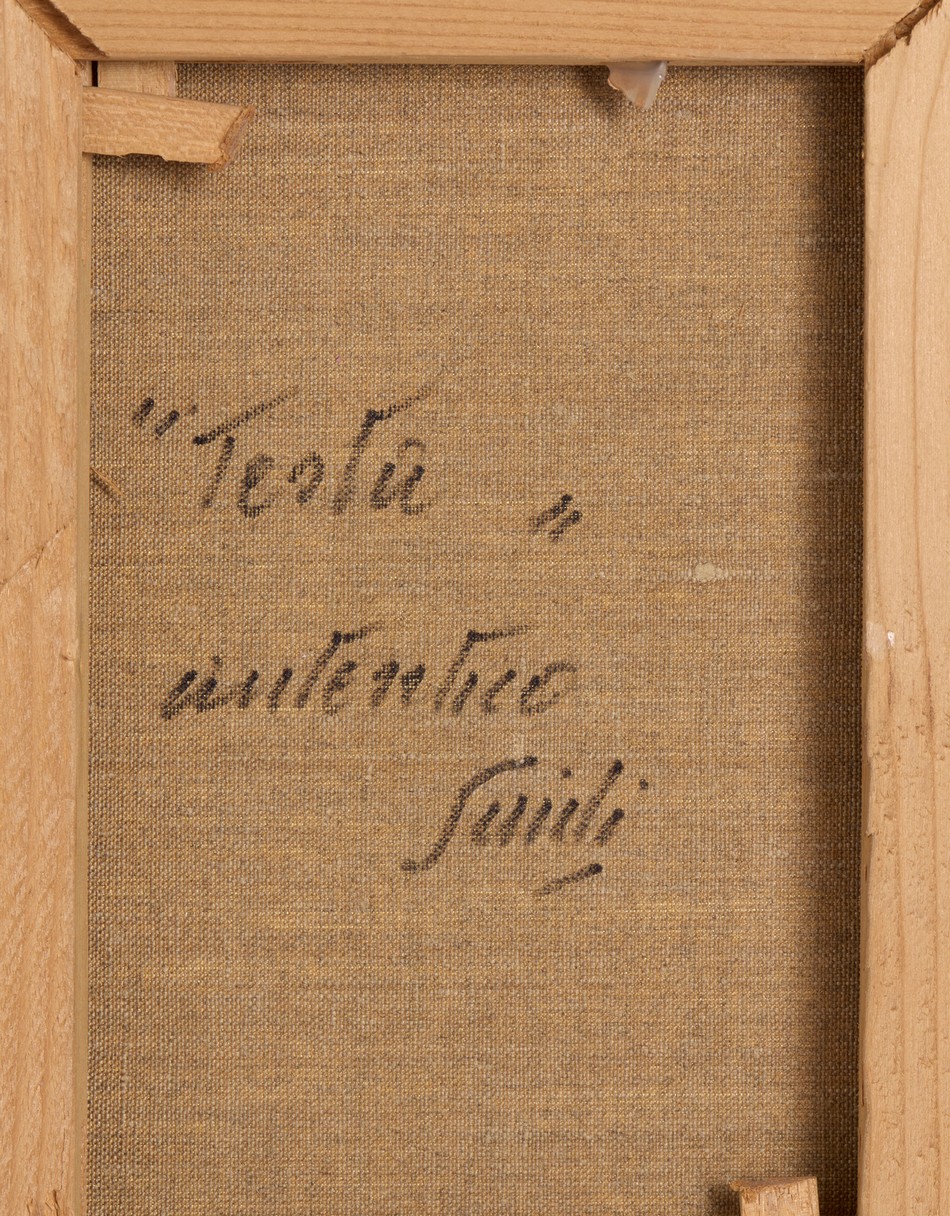 "Testa"
autentico
Guidi